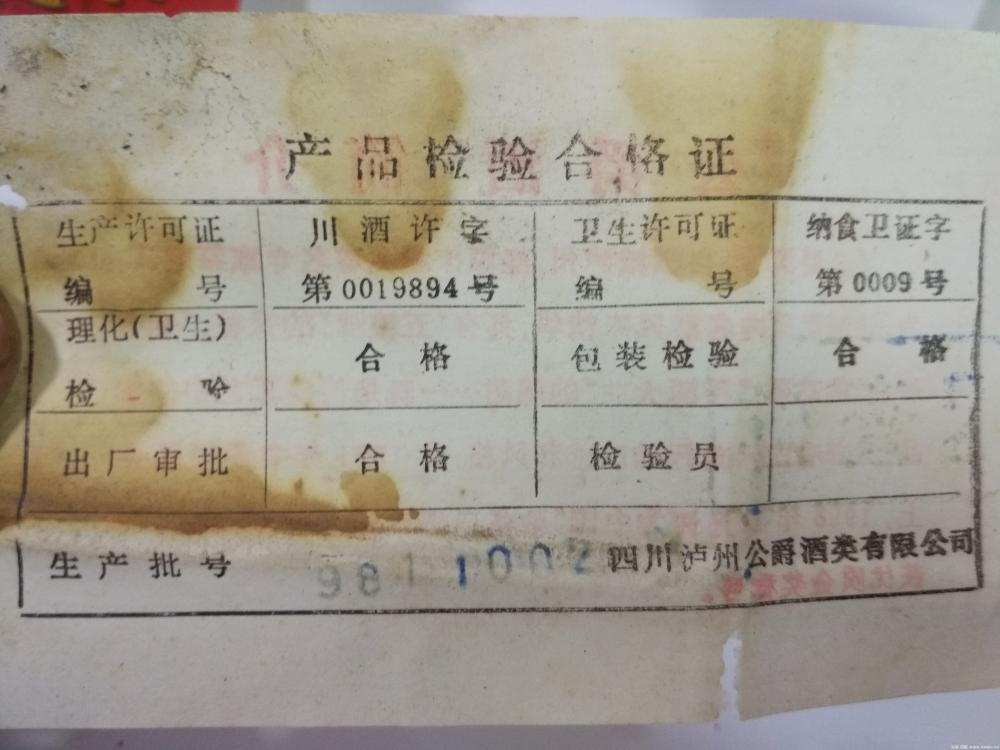 产品检验合格证
生产许可证 川酒许字 卫生许可证 纳食卫证字
编号 第0019894号 编号 第0009号
理化(卫生) 合格 包装检验 合格
检验
出厂审批 合格 检验员
生产批号 981 1002 四川泸州公爵酒类有限公司